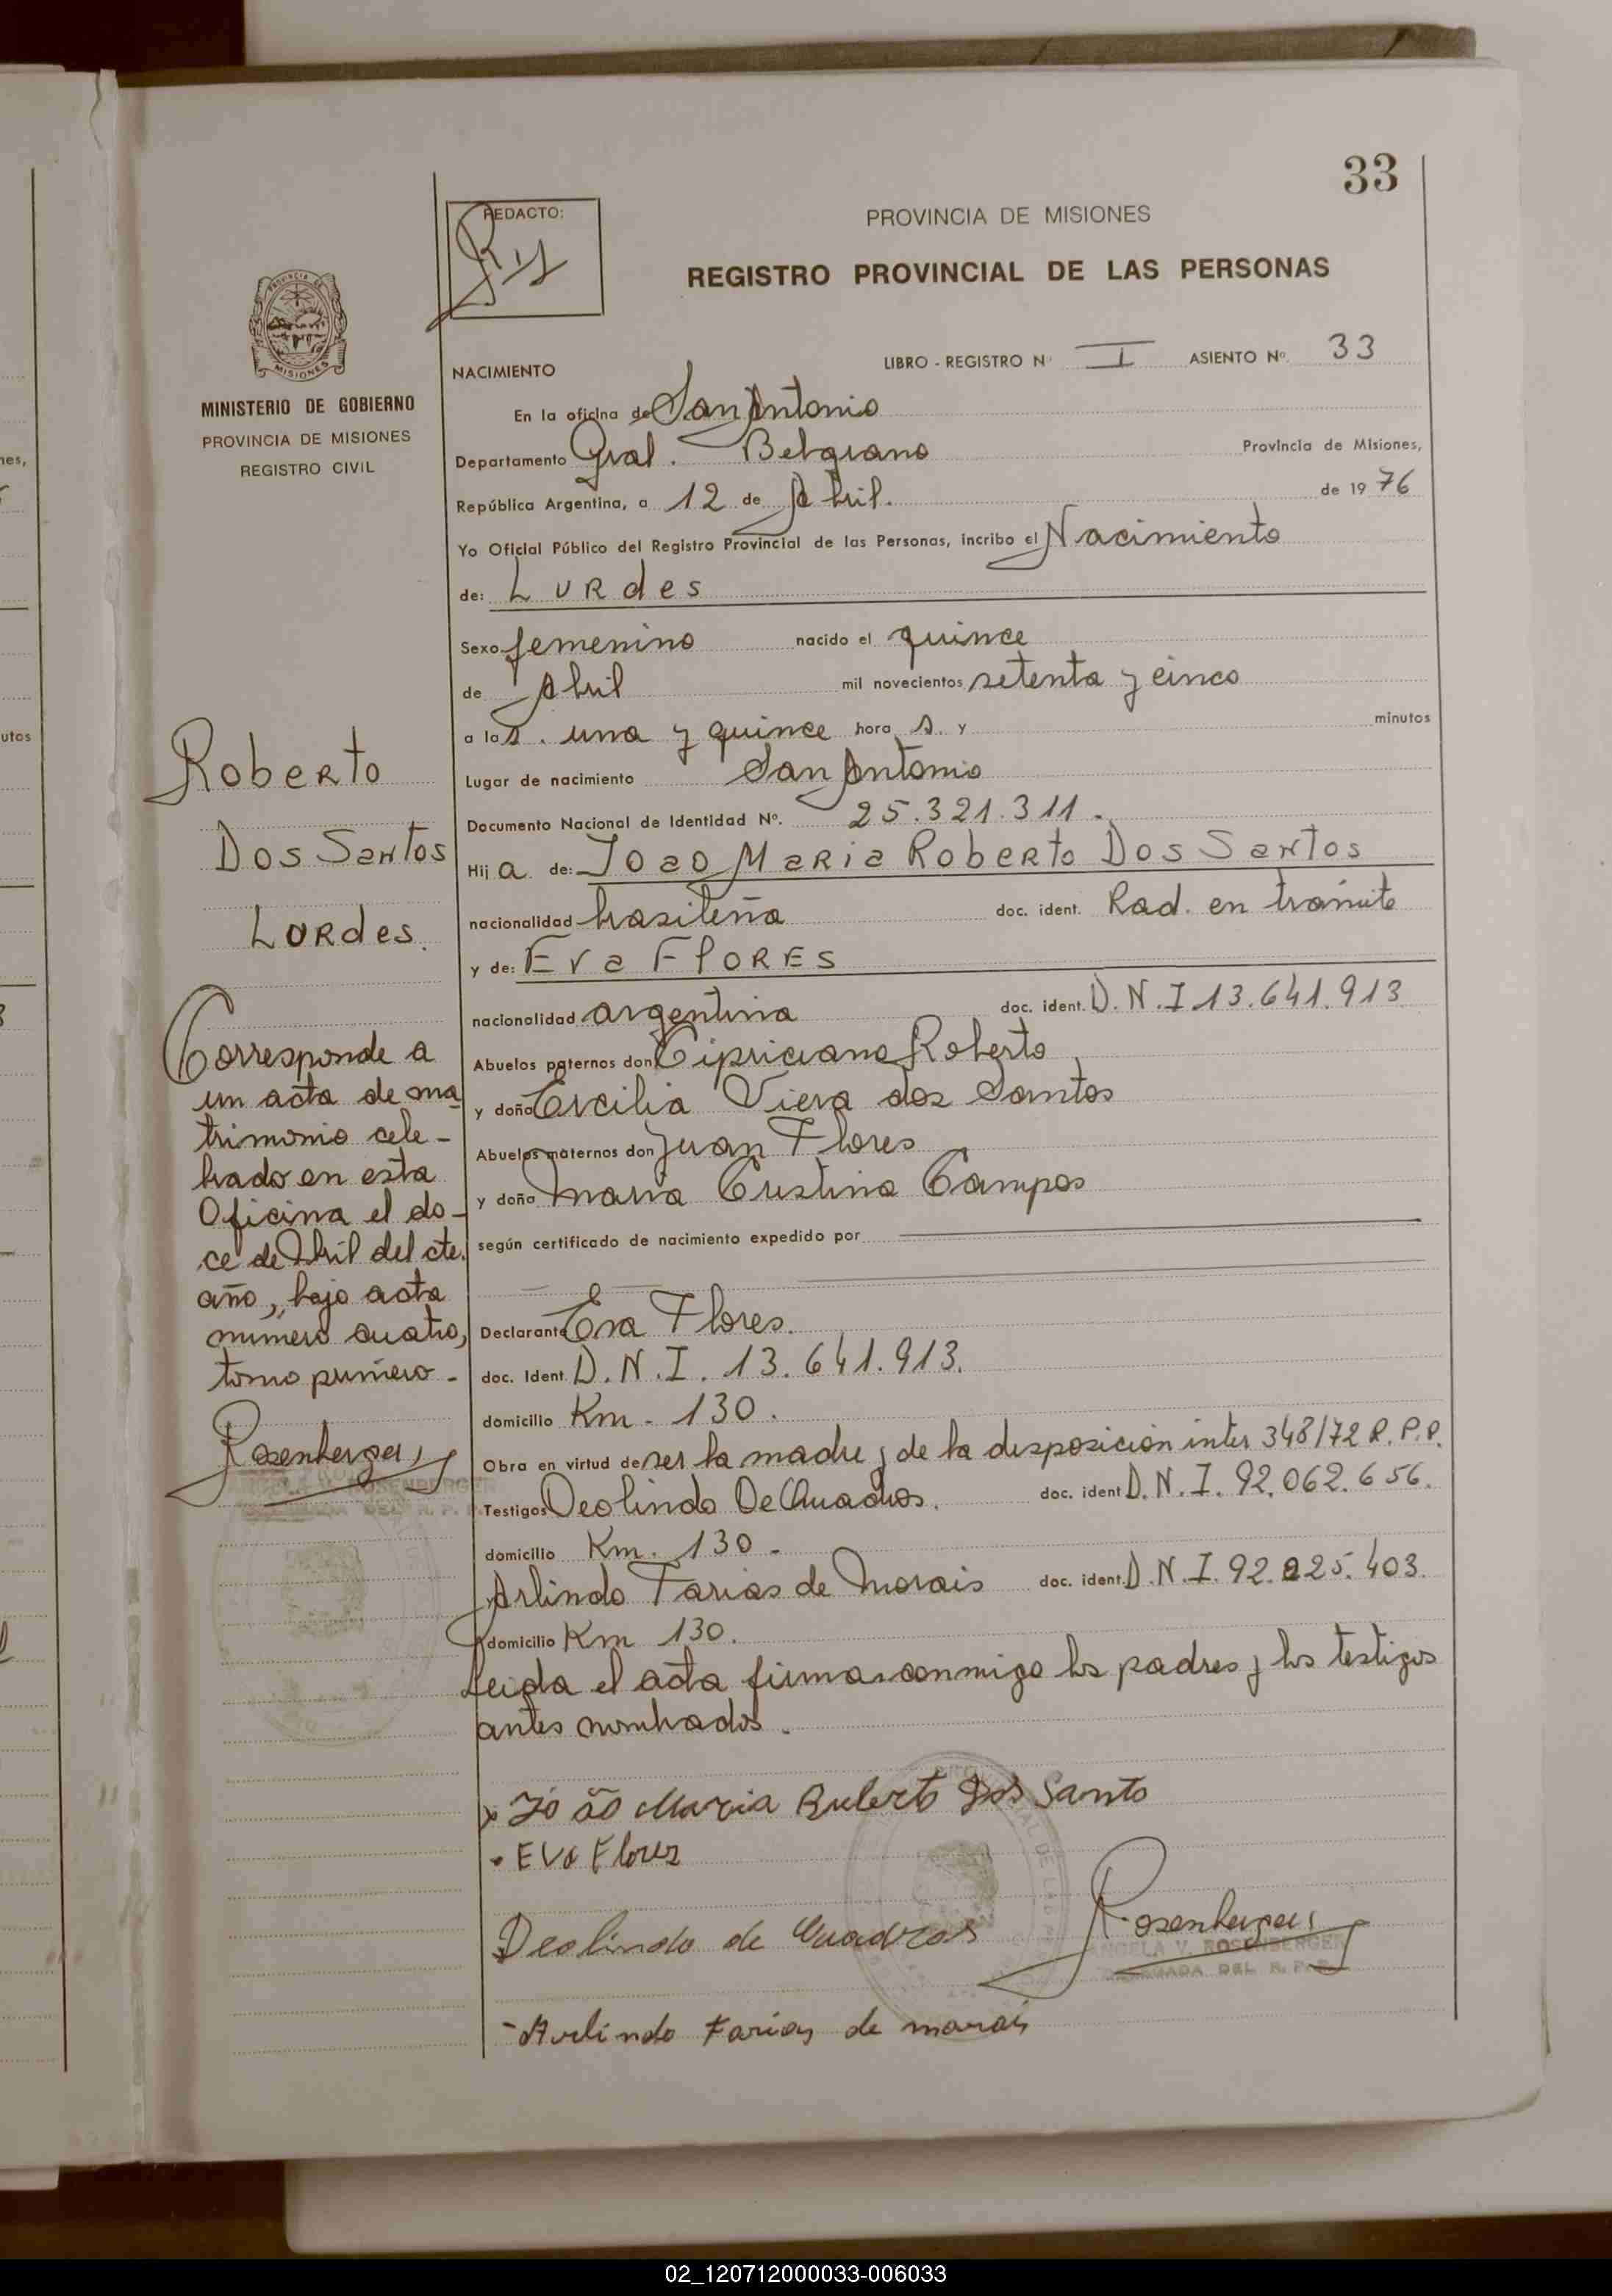 33
REDACTO:
PROVINCIA DE MISIONES
REGISTRO PROVINCIAL DE LAS PERSONAS
MISIONES
MINISTERIO DE GOBIERNO
PROVINCIA DE MISIONES
REGISTRO CIVIL
NACIMIENTO
LIBRO - REGISTRO Nº I ASIENTO Nº 33
En la oficina de San Antonio
Departamento Gral. Belgrano Provincia de Misiones,
República Argentina, a 12 de Abril. de 1976
Yo Oficial Público del Registro Provincial de las Personas, incribo el Nacimiento
de: Lurdes
Sexo femenino nacido el quince
de Abril mil novecientos setenta y cinco
a las. una y quince hora s. y minutos
Lugar de nacimiento San Antonio
Documento Nacional de Identidad Nº. 25.321.311.
Hija de: Joao Maria Roberto Dos Santos
nacionalidad brasileña doc. ident. Rad. en trámite
y de: Eva Flores
nacionalidad argentina doc. ident. D.N.I 13.641.913
Abuelos paternos don Cipriciano Roberto
y doña Ercilia Viera dos Santos
Abuelos maternos don Juan Flores
y doña Maria Cristina Campos
según certificado de nacimiento expedido por
Declarante Eva Flores.
doc. Ident. D.N.I. 13.641.913.
domicilio Km. 130.
Obra en virtud de ser la madre y de la disposición inter 348/72 R.P.P.
Testigos Deolindo De Cuadros. doc. ident D.N.I. 92.062.656.
domicilio Km. 130.
Arlindo Farias de Morais doc. ident. D.N.I. 92.225.403.
domicilio Km 130.
Leida el acta firman conmigo los padres y los testigos
antes nombrados.
Roberto
Dos Santos
Lurdes.
Corresponde a
un acta de ma
trimonio cele-
brado en esta
Oficina el do-
ce de Abril del cte.
año, bajo acta
número cuatro,
tomo primero.
Rosenberger
x João Maria Ruberto Dos Santo
EVa Flores
Deolindo de Quadros
Rosenberger
ANGELA V. ROSENBERGER
DELEGADA DEL R. P. P.
- Arlindo Farias de morais
02_120712000033-006033